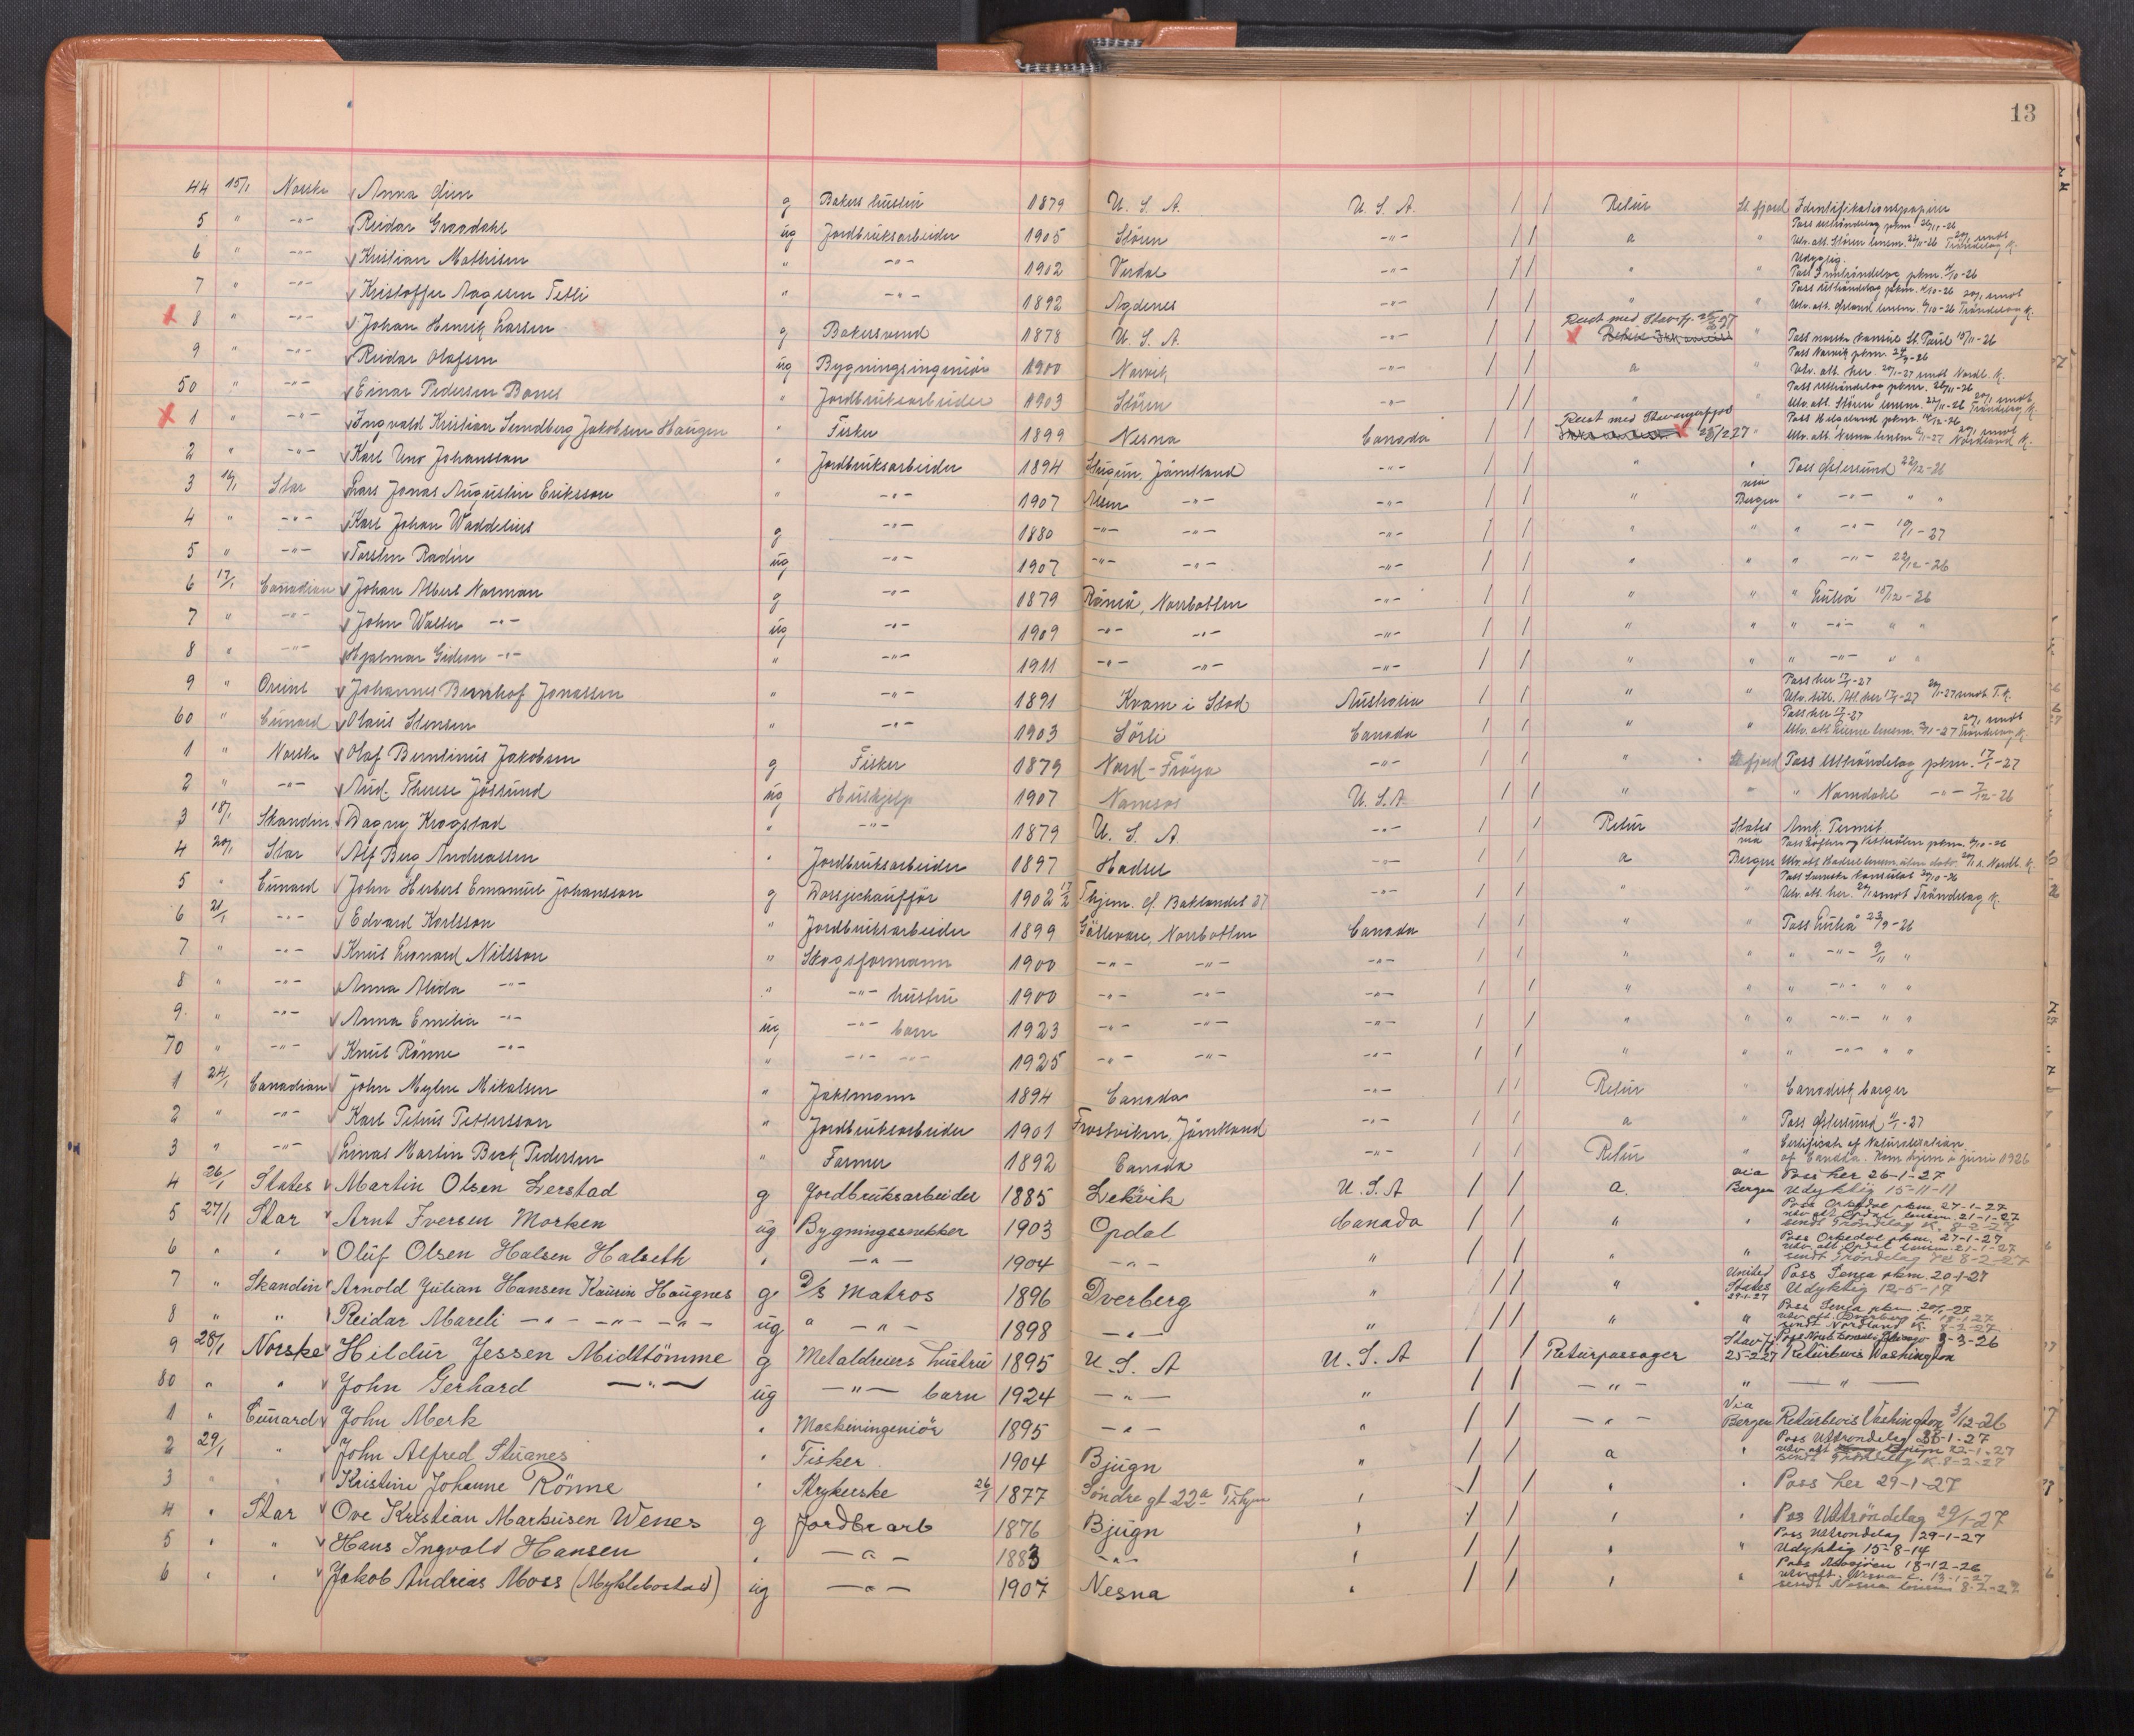 13
44 15/1 Norske Anna Lium g Bakers hustru 1879 U. S. A. U. S. A. / / Retur St. fjord Identifikationspapirer
5 " -"- Reidar Graadahl ug Jordbruksarbeider 1905 Støren -"- / / a " Pass Uttröndelag pkm. 26/11-26 Utv. att. Støren lensm. 22/11-26 20/1 sendt Tröndelag K.
6 " -"- Kristian Mathisen " -"- 1902 Verdal -"- / / " " Udygtig. Pass Inntröndelag pkm. /10-26
7 " -"- Kristoffer Aagesen Tetli " -"- 1892 Agdenes -"- / / " " Pass Uttröndelag pkm. /10-26 Utv. att. Ørland lensm. 6/10-26 20/1 sendt Tröndelag K.
x 8 " -"- Johan Henrik Larsen g Bakersvend 1878 U. S. A. -"- / / Reist med Stavgfj. 25/2-27 x " Pass norske konsul St. Paul 15/11-26
9 " -"- Reidar Olafsen ug Bygningsingeniör 1900 Narvik -"- / / a " Pass Narvik pkm. 24/9-26 Utv. att. her. 20/1-27 sendt Nordl. K.
50 " -"- Einar Pedersen Bones " Jordbruksarbeider 1903 Stören -"- / / " " Pass Uttröndelag pkm. 26/11-26 Utv. att. Stören lensm. 22/11-26 20/1 sendt Tröndelag K.
x 1 " -"- Ingvald Kristian Sundberg Jakobsen Haugen " Fisker 1899 Nesna Canada / / Reist med Stavangerfjord x 25/2 27 " Pass Helgeland pkm. /12-26 Utv. att. Nesna lensm. /1-27 20/1 sendt Nordland K.
2 " -"- Karl Uno Johansson " Jordbruksarbeider 1894 Stugun, Jämtland -"- / / " " Pass Östersund 22/12-26
3 16/1 Star Lars Jonas Augustin Eriksson " -"- 1907 Alsen -"- -"- / / " via Bergen " -"- " "
4 " -"- Karl Johan Waddelius g -"- 1880 -"- -"- -"- / / " " " -"- 10/1-27
5 " -"- Torsten Radin ug -"- 1907 -"- -"- -"- / / " " " -"- 22/12-26
6 17/1 Canadian Johan Albert Norman g -"- 1879 Råneå, Norrbotten -"- / / " " " Luleå 15/12-26
7 " -"- John Walter -"- ug -"- 1909 -"- -"- -"- / / " " " -"- " "
8 " -"- Hjalmar Gideon -"- " -"- 1911 -"- -"- -"- / / " " " -"- " "
9 " Orient Johannes Bernhof Jonassen " -"- 1891 Kvam i Stod Australia / / " " Pass her 17/1-27 Utv. till. Att. her 17/1-27 20/1-27 sendt T.K.
60 " Cunard Olaus Stensen " -"- 1903 Sörli Canada / / " " Pass her 17/1-27 Utv. att. lensm. /1-27 20/1 sendt Tröndelag K.
1 " Norske Olaf Berntinus Jakobsen g Fisker 1879 Nord-Fröya -"- / / " St. fjord Pass Uttröndelag pkm. 17/1-27
2 " -"- Aud. Therese Jössund ug Hushjelp 1907 Namsos U. S. A / / " " " Namdahl -"- 7/12-26
3 18/1 Skandin Dagny Krogstad " -"- 1879 U. S. A -"- / / Retur States Amk. Permit
4 20/1 Star Alf Berg Andreassen " Jordbruksarbeider 1897 Hadsel -"- / / a via Bergen Pass Lofoten og Vesterålen pkm. /10-26 Utv. att. Hadsel lensm. uten dato. 20/1 s. Nordl. K.
5 " Cunard John Herbert Emanuel Johansson g Drosjechaufför 1902 17/2 Thjem. Ö. Baklandet 27 -"- / / " " Pass Svenske konsulat 20/10-26 Utv. att. her. 20/1 sendt Tröndelag K.
6 21/1 -"- Edvard Karlsson " Jordbruksarbeider 1899 Gällivare, Norrbotten Canada / / " " Pass Luleå 23/9-26
7 " -"- Knut Leonard Nilsson " Skogsformann 1900 -"- -"- -"- / / " " " -"- 9/11 "
8 " -"- Anna Alida -"- " -"- hustru 1900 -"- -"- -"- / / " " " -"- " "
9. " -"- Anna Emilia -"- ug -"- barn 1923 -"- -"- -"- / / " " " -"- " "
70 " -"- Knut Rönne -"- " -"- -"- 1925 -"- -"- -"- / / " " " -"- " "
1 24/1 Canadian John Myhre Mikalsen " Jaktmann 1894 Canada -"- / / Retur " Canadisk borger
2 " -"- Karl Petrus Pettersson " Jordbruksarbeider 1901 Frostviken, Jämtland -"- / / a " Pass Östersund /1-27
3 " -"- Linas Martin Beck Pedersen " Farmer 1892 Canada -"- / / Retur " Certificate of Naturalization of Canada. Kom hjem i juni 1926
4 26/1 States Martin Olsen Lerstad g Jordbruksarbeider 1885 Leksvik U. S. A / / a. via Bergen Pass her 26-1-27 Udyktig 15-11-11
5 27/1 Star Arnt Iversen Morken ug Bygningssnekker 1903 Opdal Canada / / " " Pass Orkedal pkm. 27-1-27 utv. att Opdal lensm. 21-1-27 sendt Tröndelag K. 8-2-27
6 " " Oluf Olsen Halsen Halseth " -"- 1904 -"- " / / " " Pass Orkedal pkm. 27-1-27 utv. att Opdal lensm. 21-1-27 sendt Tröndelag K 8-2-27
7 " Skandin Arnold Julian Hansen Kaurin Haugnes g D/s Matros 1896 Dverberg " / / " United States 29-1-27 Pass Senja pkm. 20-1-27 Udyktig 12-5-17
8 " " Reidar Mareli -"- -"- -"- ug " -"- 1898 -"- " / / " " Pass Senja pkm. 20/1-27 utv. att. Dverberg L. 18-1-27 sendt Nordland K. 8-2-27
9 28/1 Norske Hildur Jessen Midttömme g Metaldreiers hustru 1895 U. S. A U. S. A / / Returpassager Stavfj 25-2 27 Pass Norsk Consul Chicago 3-3-26 Returbevis Washington
80 " " John Gerhard -"- ug -"- barn 1924 -"- " / / -"- " -"-
1 " Cunard John Merk " Maskiningeniör 1895 -"- " / / -"- Via Bergen Returbevis Washington 3/12-26
2 29/1 " John Alfred Stuanes " Fisker 1904 Bjugn " / / a " Pass Uttröndelag 25-1-27 utv. att Bjugn 22-1-27 sendt Tröndelag K. 8-2-27
3 " " Kristine Johanne Rönne " Strykerske 26/1 1877 Söndre gt 22a Trhjm " / / " " Pass her 29-1-27
4 " Star Ove Kristian Markusen Wenes g Jordbr arb 1876 Bjugn " / / " " Pas Uttröndelag 29/1-27
5 " " Hans Ingvald Hansen " -"- 1883 -"- " / / " " Pass Uttröndelag 29-1-27 Udyktig 15-8-14
6 " " Jakob Andreas Moss (Myklebostad) ug -"- 1907 Nesna " / / " " Pass Mosjöen 18-12-26 utv. att. Nesna L. 13-1-27 sendt Nesna lensm 8-2-27